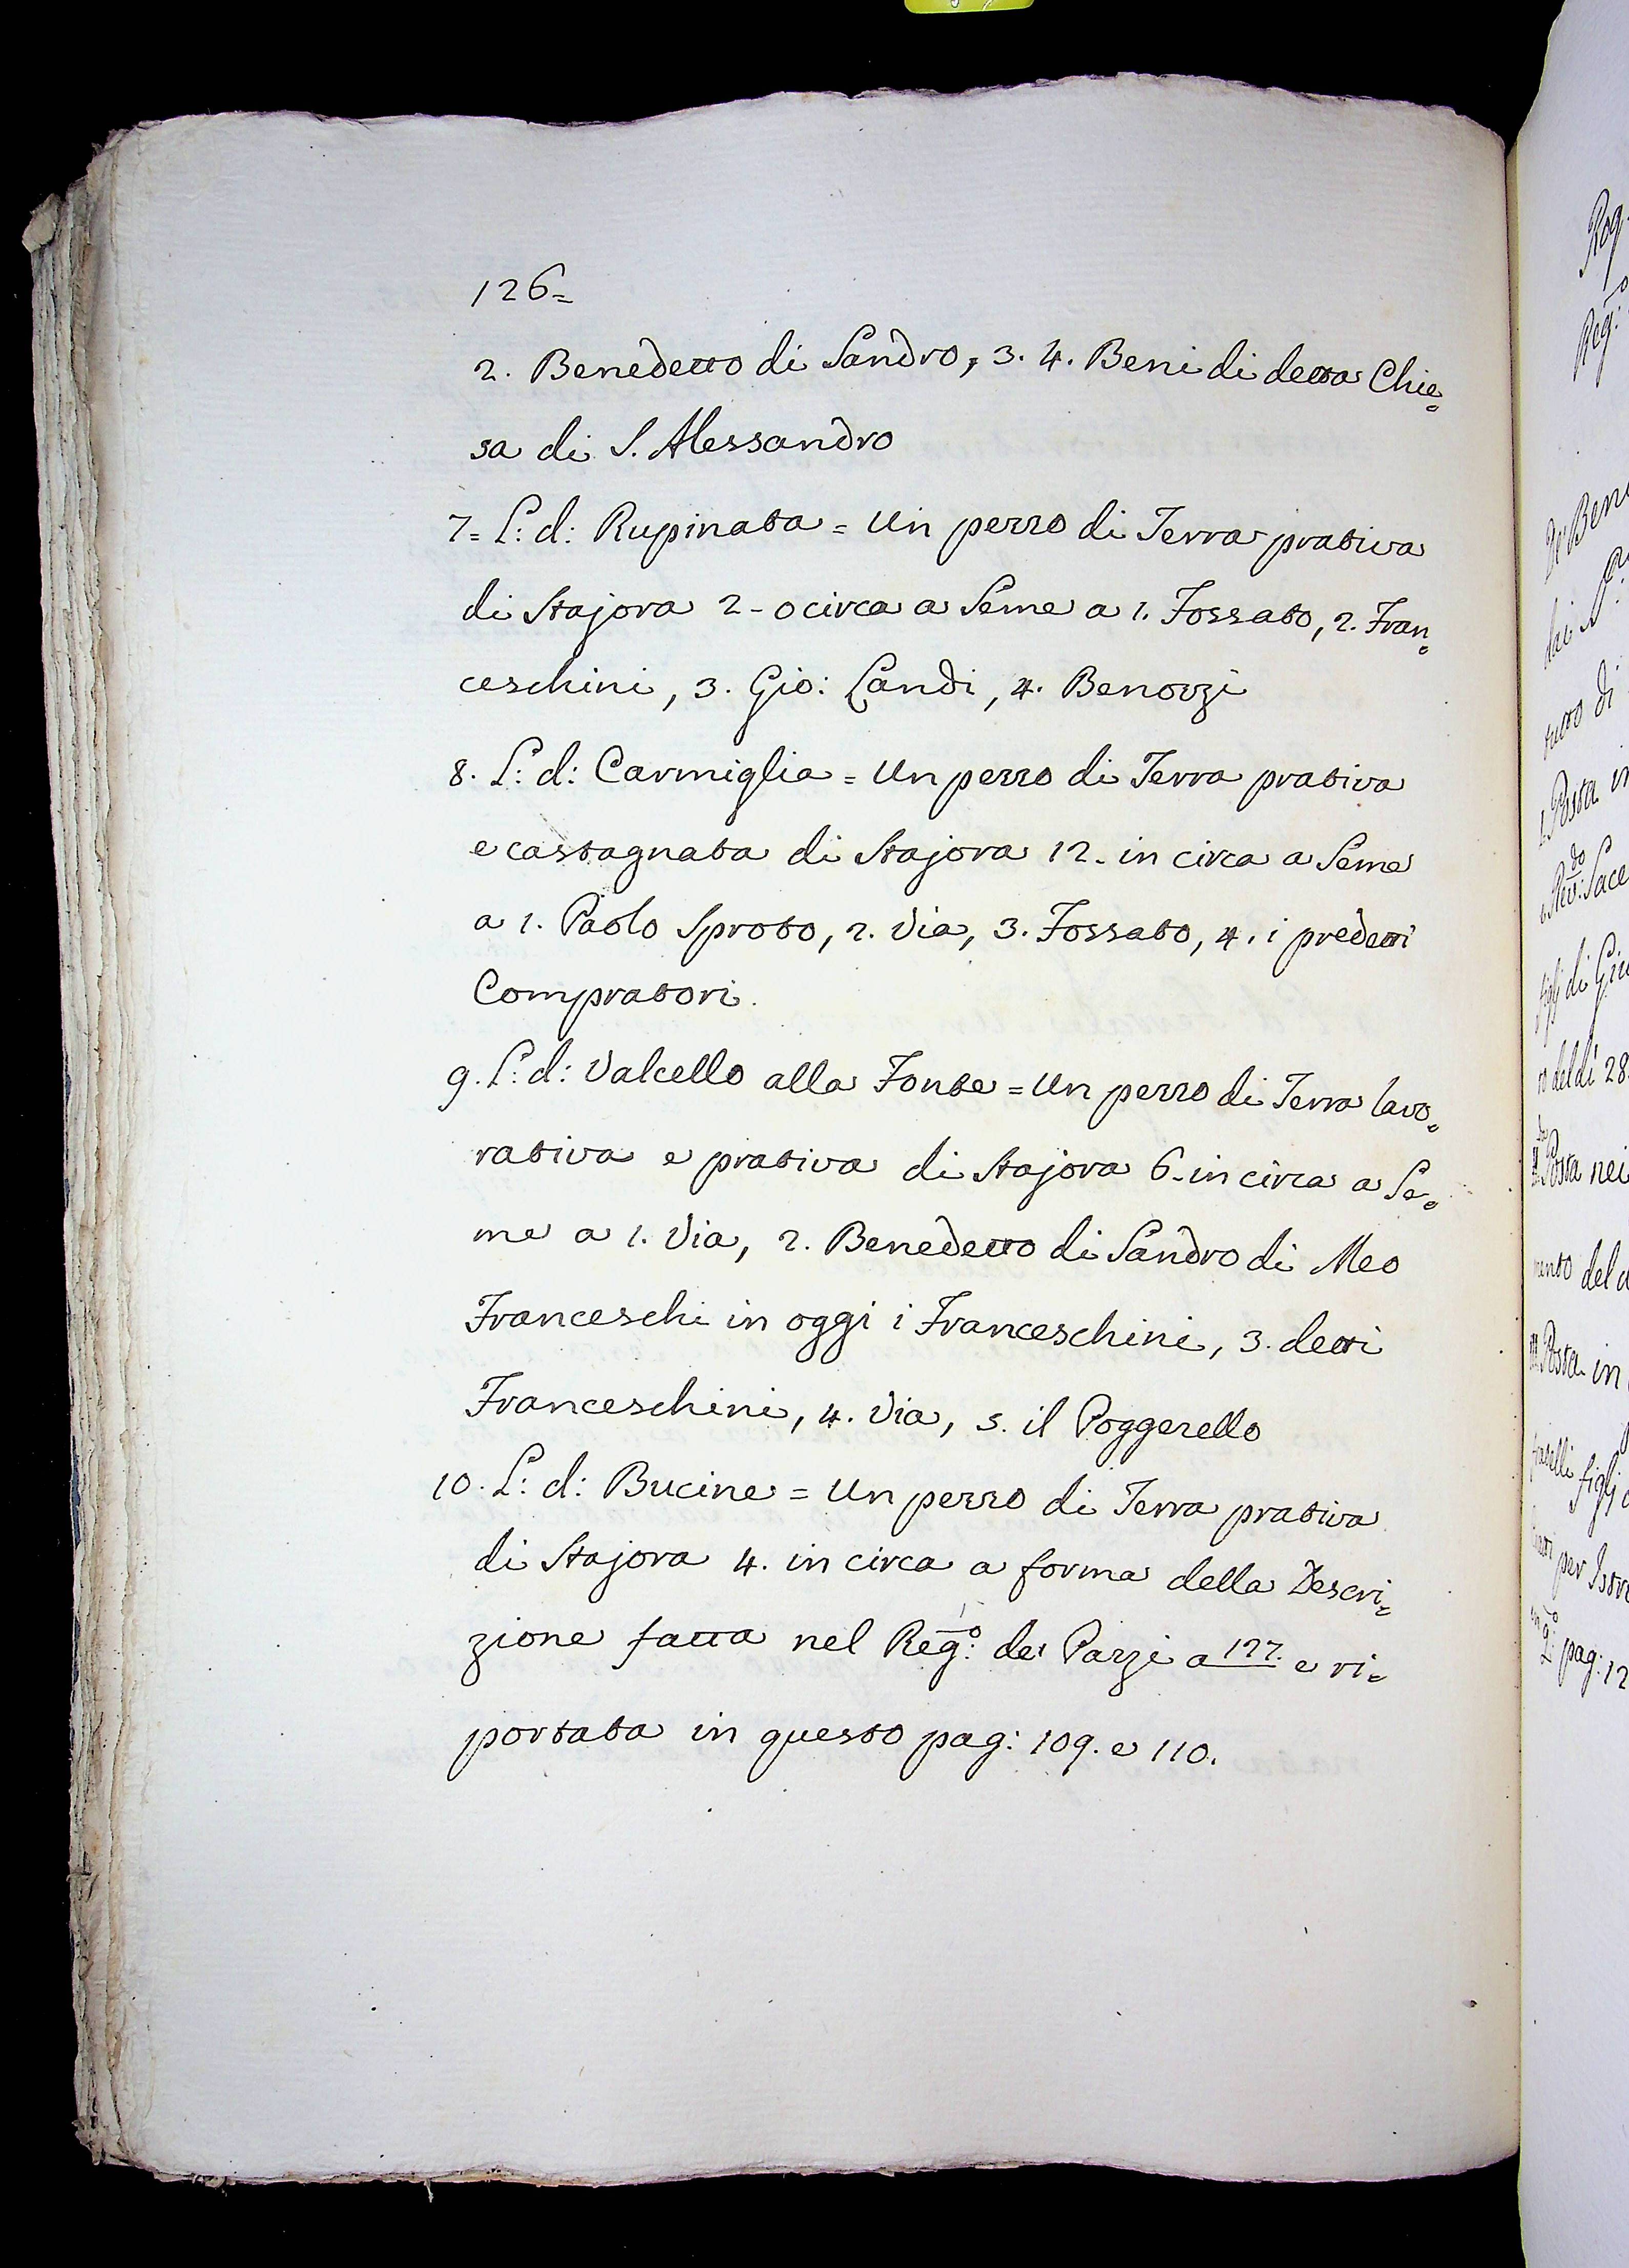 126=
2. Benedetto di Sandro, 3. 4. Beni di detta Chie=
sa di S. Alessandro
7= L: d: Rupinata = Un pezzo di Terra prativa
di Stajora 2 - o circa a Seme a 1. Fossato, 2. Fran=
ceschini, 3. Gio: Landi, 4. Benozzi
8. L: d: Carmiglia = Un pezzo di Terra prativa
e castagnata di Stajora 12. in circa a Seme
a 1. Paolo Sproto, 2. Via, 3. Fossato, 4. i predetti
Compratori.
9. L: d: Valcello alla Fonte = Un pezzo di Terra lavo=
rativa e prativa di Stajora 6. in circa a Se=
me a 1. Via, 2. Benedetto di Sandro di Meo
Franceschi in oggi i Franceschini, 3. detti
Franceschini, 4. Via, 5. il Poggerello
10. L: d: Bucine = Un pezzo di Terra prativa
di Stajora 4. in circa a forma della Descri=
zione fatta nel Reg:º de' Pazzi a 127. e ri=
portata in questo pag: 109. e 110.